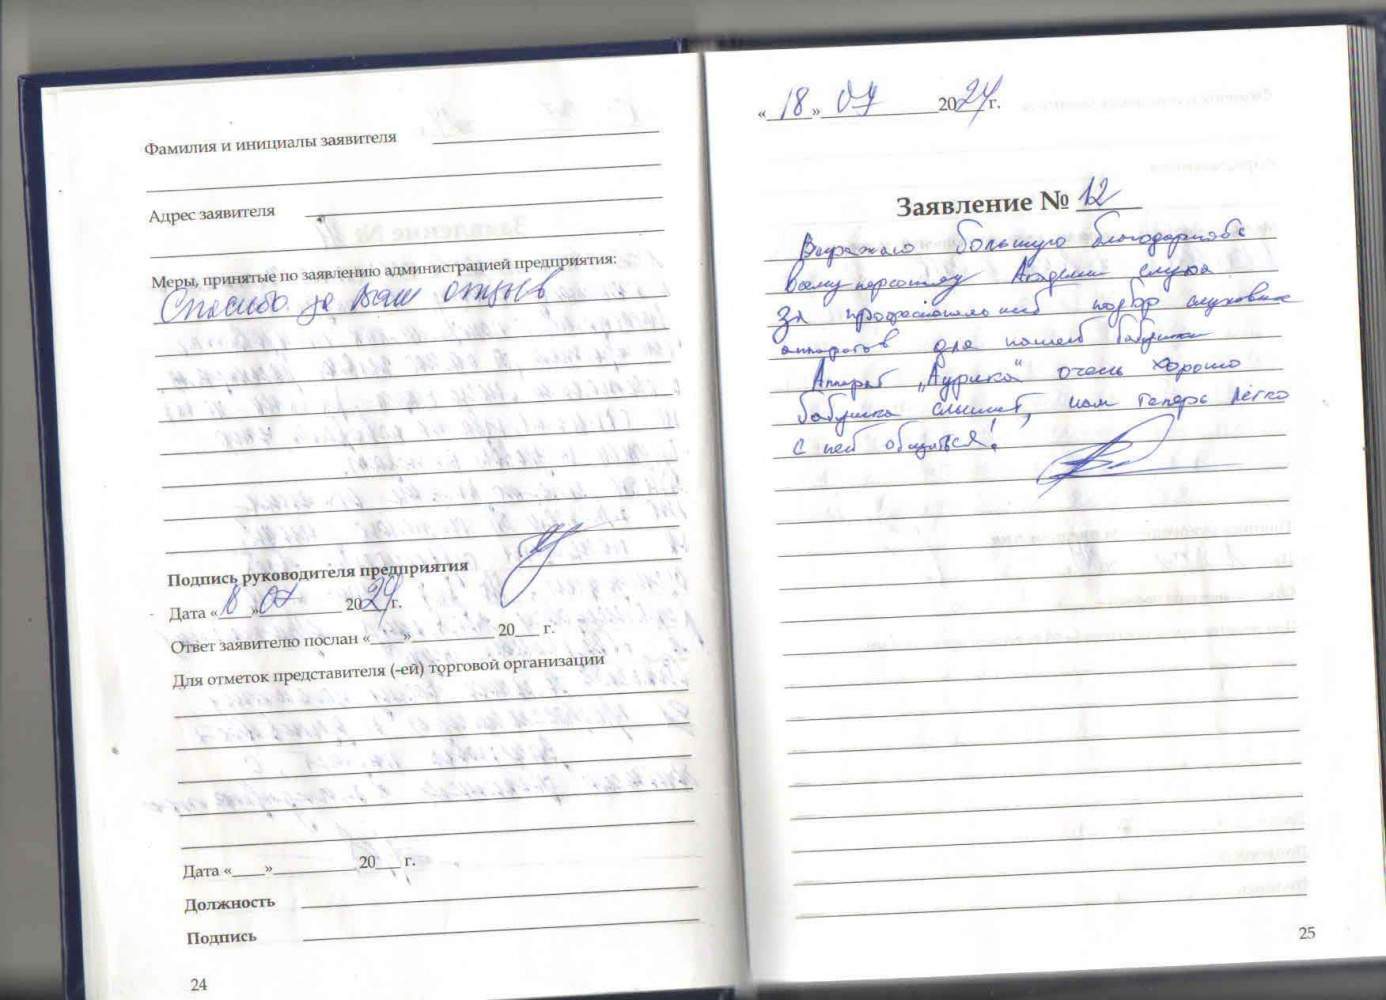 Фамилия и инициалы заявителя
Адрес заявителя
Меры, принятые по заявлению администрацией предприятия:
Спасибо за Ваш отзыв
Подпись руководителя предприятия
Дата «18» 07 2024 г.
Ответ заявителю послан «____»__________ 20___ г.
Для отметок представителя (-ей) торговой организации
Дата «____»__________ 20___ г.
Должность
Подпись
24
«18» 07 2024 г.
Заявление № 12
Выражаю большую благодарность
всему персоналу Академии слуха
За професиональный подбор слуховых
аппаратов для нашей бабушки
Аппарат „Аурика“ очень хорошо
бабушка слышит, нам теперь легко
с ней общаться!
25